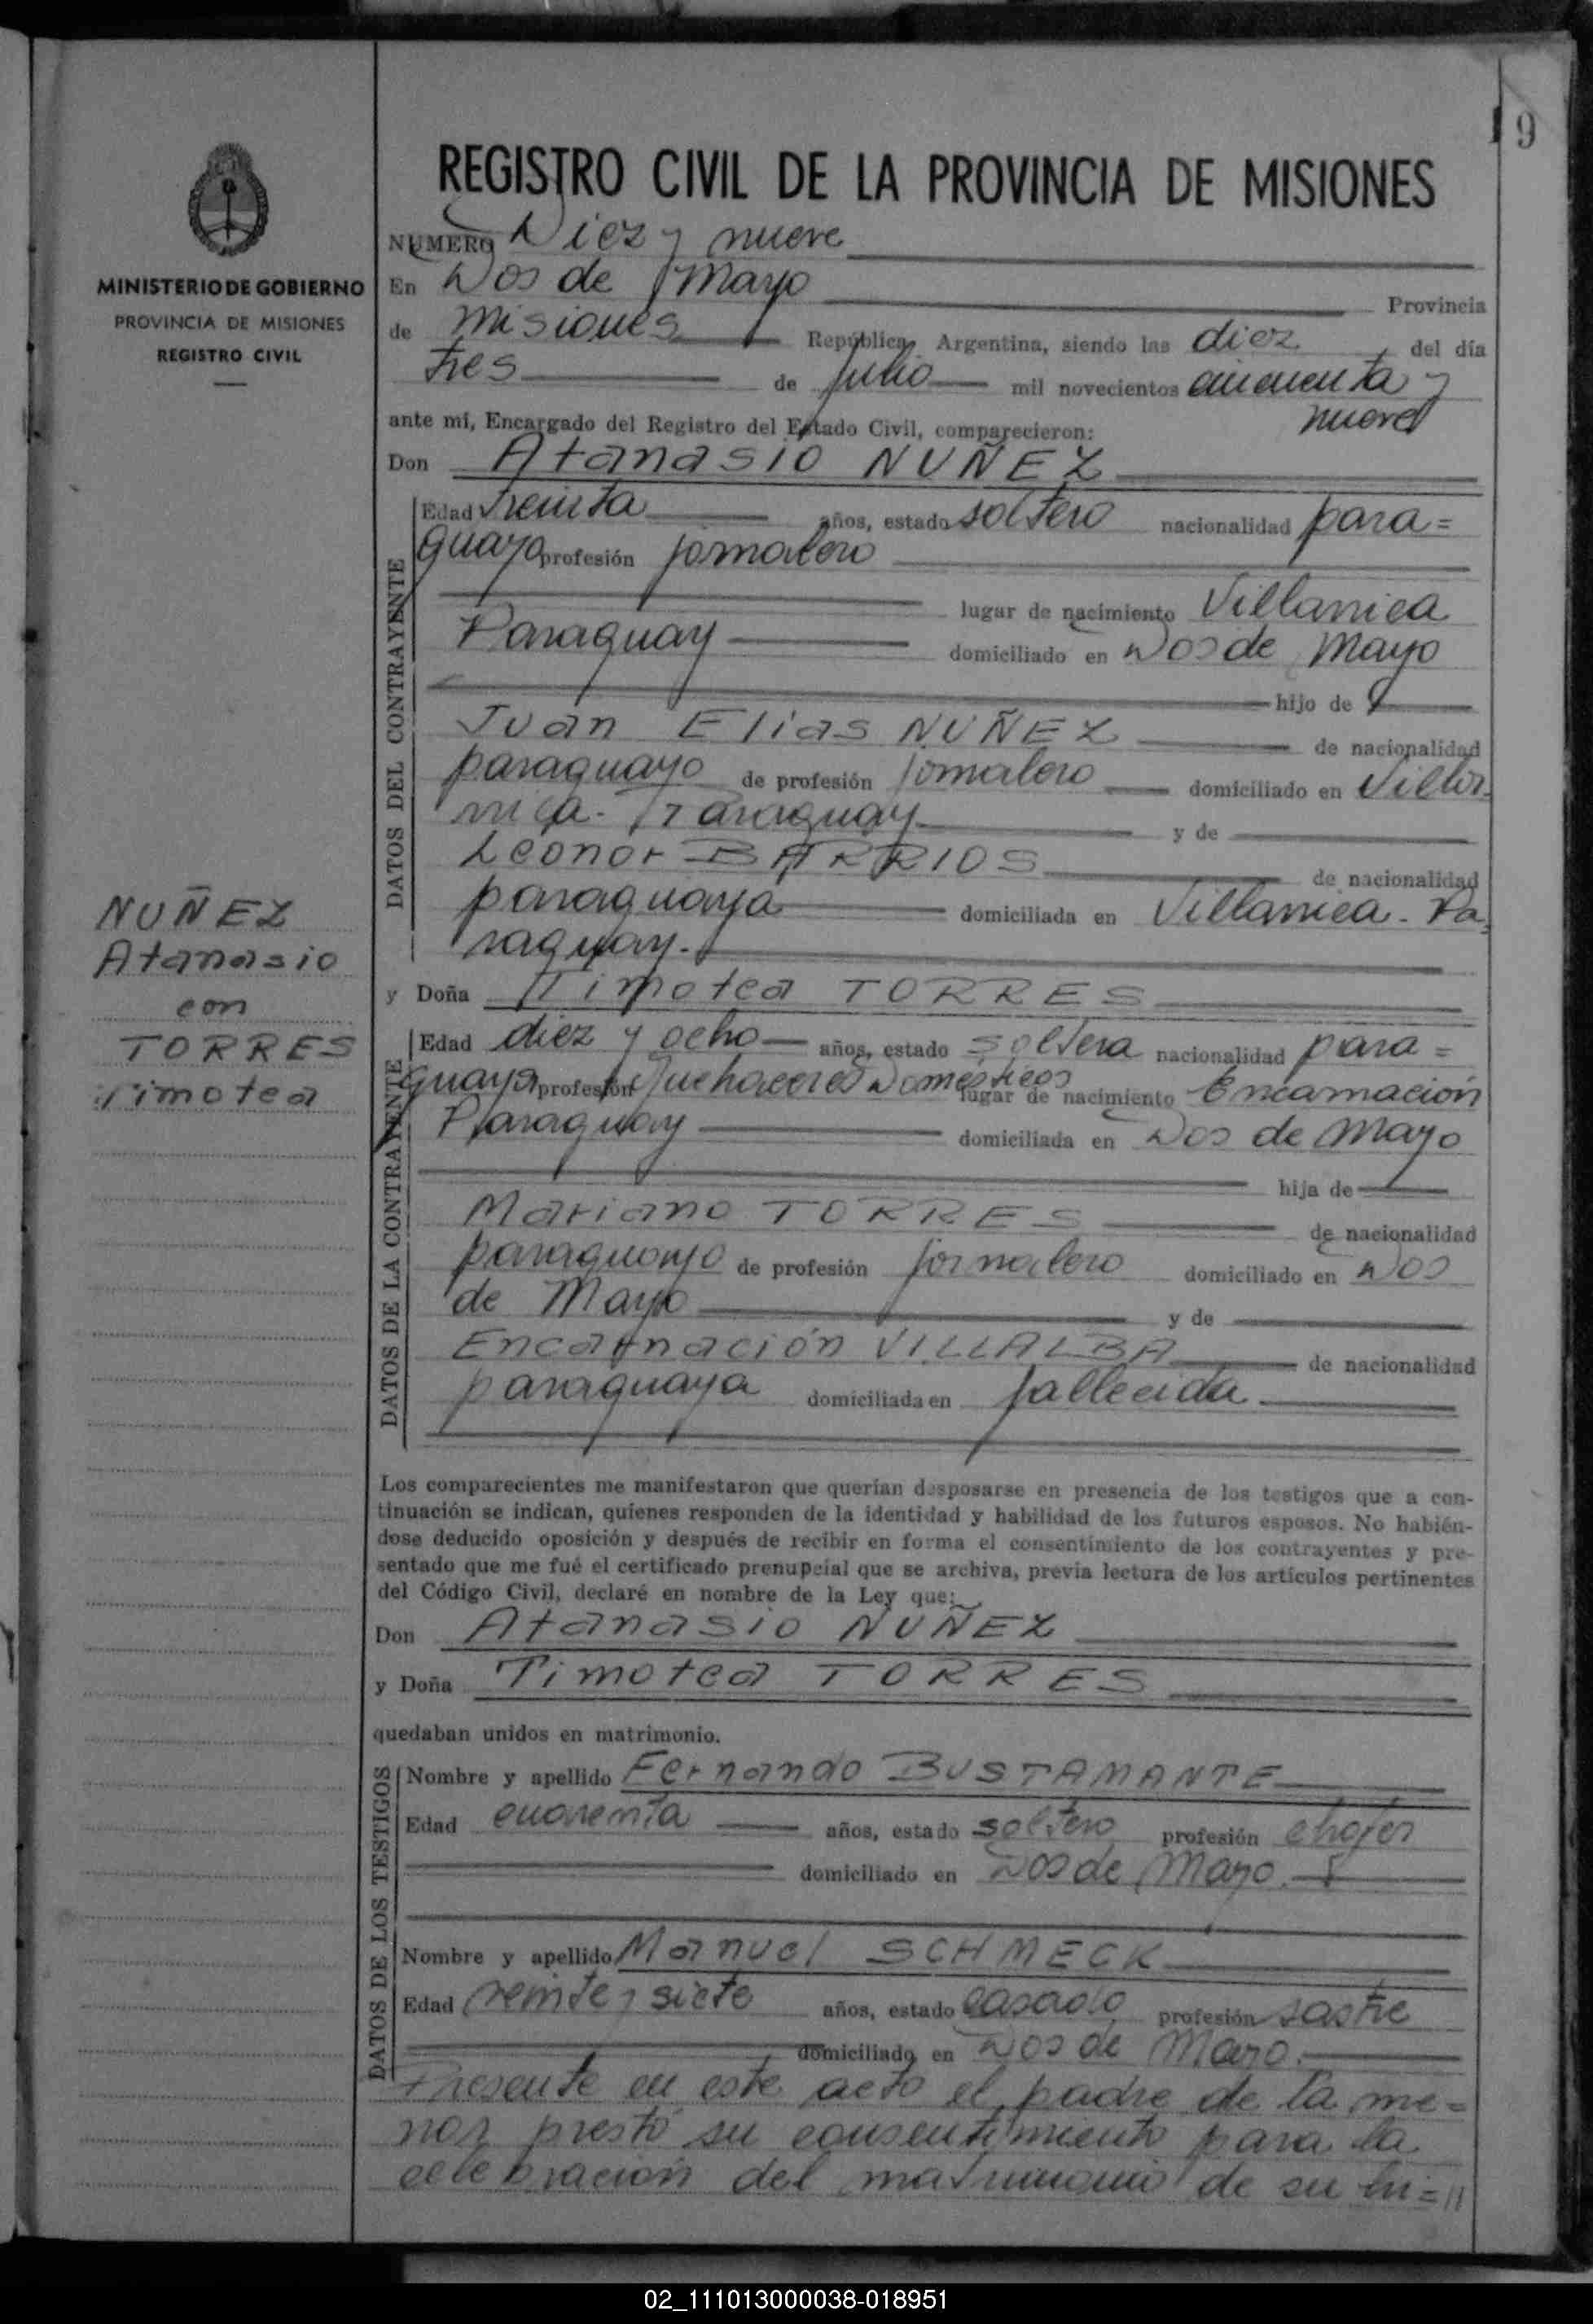 19
REGISTRO CIVIL DE LA PROVINCIA DE MISIONES
MINISTERIO DE GOBIERNO
PROVINCIA DE MISIONES
REGISTRO CIVIL
NUMERO Diez y nueve
En Dos de Mayo Provincia
de Misiones República Argentina, siendo las diez del día
tres de Julio mil novecientos cincuenta y
nueve
ante mí, Encargado del Registro del Estado Civil, comparecieron:
Don Atanasio NUÑEZ
DATOS DEL CONTRAYENTE
Edad treinta años, estado soltero nacionalidad para=
guayo profesión jornalero
lugar de nacimiento Villarrica
Paraguay domiciliado en Dos de Mayo
hijo de
Juan Elias NUÑEZ de nacionalidad
paraguayo de profesión jornalero domiciliado en Villar-
rica. Paraguay y de
Leonor BARRIOS de nacionalidad
paraguaya domiciliada en Villarrica. Pa=
raguay.
y Doña Timotea TORRES
DATOS DE LA CONTRAYENTE
Edad diez y ocho años, estado soltera nacionalidad para=
guaya profesión Quehaceres Domésticos lugar de nacimiento Encarnación
Paraguay domiciliada en Dos de Mayo
hija de
Mariano TORRES de nacionalidad
paraguayo de profesión jornalero domiciliado en Dos
de Mayo y de
Encarnación VILLALBA de nacionalidad
paraguaya domiciliada en fallecida
NUÑEZ
Atanasio
con
TORRES
Timotea
Los comparecientes me manifestaron que querían desposarse en presencia de los testigos que a con-
tinuación se indican, quienes responden de la identidad y habilidad de los futuros esposos. No habién-
dose deducido oposición y después de recibir en forma el consentimiento de los contrayentes y pre-
sentado que me fué el certificado prenupcial que se archiva, previa lectura de los artículos pertinentes
del Código Civil, declaré en nombre de la Ley que:
Don Atanasio NUÑEZ
y Doña Timotea TORRES
quedaban unidos en matrimonio.
DATOS DE LOS TESTIGOS
Nombre y apellido Fernando BUSTAMANTE
Edad cuarenta años, estado soltero profesión chofer
domiciliado en Dos de Mayo.
Nombre y apellido Manuel SCHMECK
Edad veinte y siete años, estado casado profesión sastre
domiciliado en Dos de Mayo.
Presente en este acto el padre de la me=
nor prestó su consentimiento para la
celebración del matrimonio de su hi=//
02_111013000038-018951